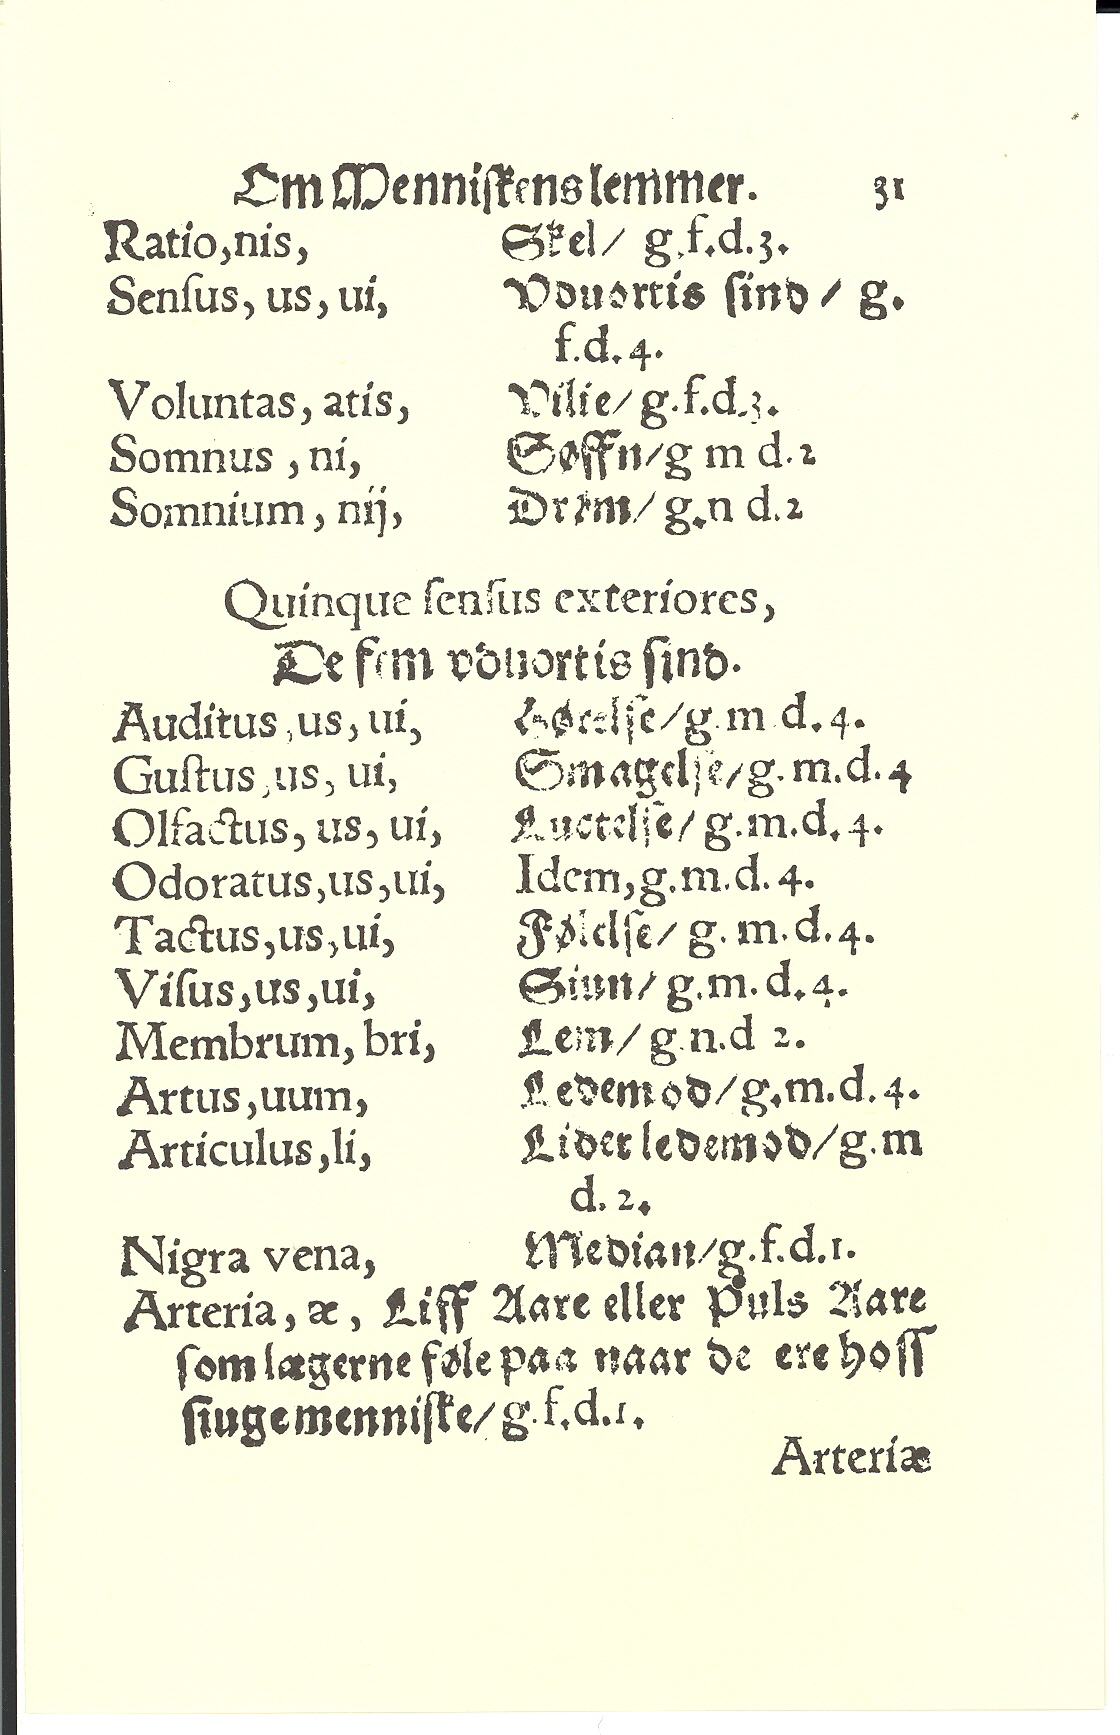 Om Menniſkens lemmer. 31
Ratio,nis, Skel/ g.f.d.3.
Senſus, us, ui, Vduortis ſind / g.
f.d.4.
Voluntas, atis, Vilie/ g.f.d.3.
Somnus , ni, Søffn/g m d.2
Somnium, nij, Drøm/ g.n d.2
Quinque ſenſus exteriores,
De fem vduortis ſind.
Auditus,us, ui, Hørelſe/g.m d.4.
Guſtus,us, ui, Smagelſe/g.m.d.4
Olfactus, us, ui, Luctelſe/ g.m.d.4.
Odoratus,us,ui, Idem,g.m.d.4.
Tactus,us,ui, Følelſe/ g.m.d.4.
Viſus,us,ui, Siun/ g.m.d.4.
Membrum, bri, Lem/ g.n.d 2.
Artus,uum, Ledemod/g.m.d.4.
Articulus,li, Lidet ledemod/g.m
d.2.
Nigra vena, Median/g.f.d.1.
Arteria, æ, Liff Aare eller Puls Aare
ſom lægerne føle paa naar de ere hoſſ
ſiuge menniſke/ g.f.d.1.
Arteriæ